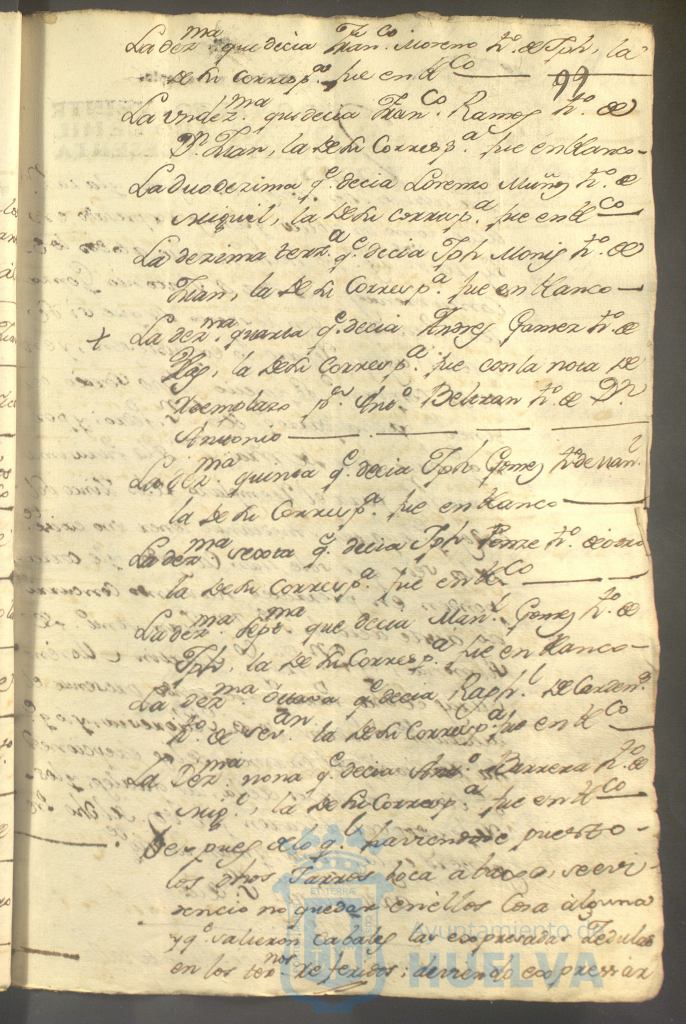 La dez.ma que decia Fran.co Moreno h.o de Jph, la
de su corresp.a fue en bl.co
99
La undez.ma que decia Fran.co Ramos h.o de
D.n Juan, la de su corresp.a fue en blanco
La duodezima q.e decia Lorenzo Muñoz h.o de
Miguel, la de su corresp.a fue en bl.co
La dezima terz.a q.e decia Jph h.o de
Juan, la de su corresp.a fue en blanco
+ La dez.ma quarta q.e decia Andres Gomez h.o de
Blas, la de su corresp.a fue con la nota de
Reemplazo p.r Ant.o Beltran h.o de D.n
Antonio
La dez.ma quinta q.e decia Jph Gomez h.o de
la de su corresp.a fue en blanco
La dez.ma sexta q.e decia Jph Ponze h.o de otro
la de su corresp.a fue en bl.co
La dez.ma sept.ma que decia Man.l Gomez h.o de
Jph, la de su corresp.a fue en blanco
La dez.ma octava q.e decia Raph.l de Carden.s
h.o de Sev.an la de su corresp.a fue en bl.co
La dez.ma nona q.e decia Ant.o Barrera h.o de
Mig.l, la de su corresp.a fue en bl.co
Despues de lo q.l haviendose puesto
los dhos Jarros boca abaxo, se evi-
dencio no quedar en ellos cosa alguna
y q.e salieron cabales las expresadas Zedulas
en los ter.nos referidos; deviendo expressar
Ayuntamiento de
HUELVA